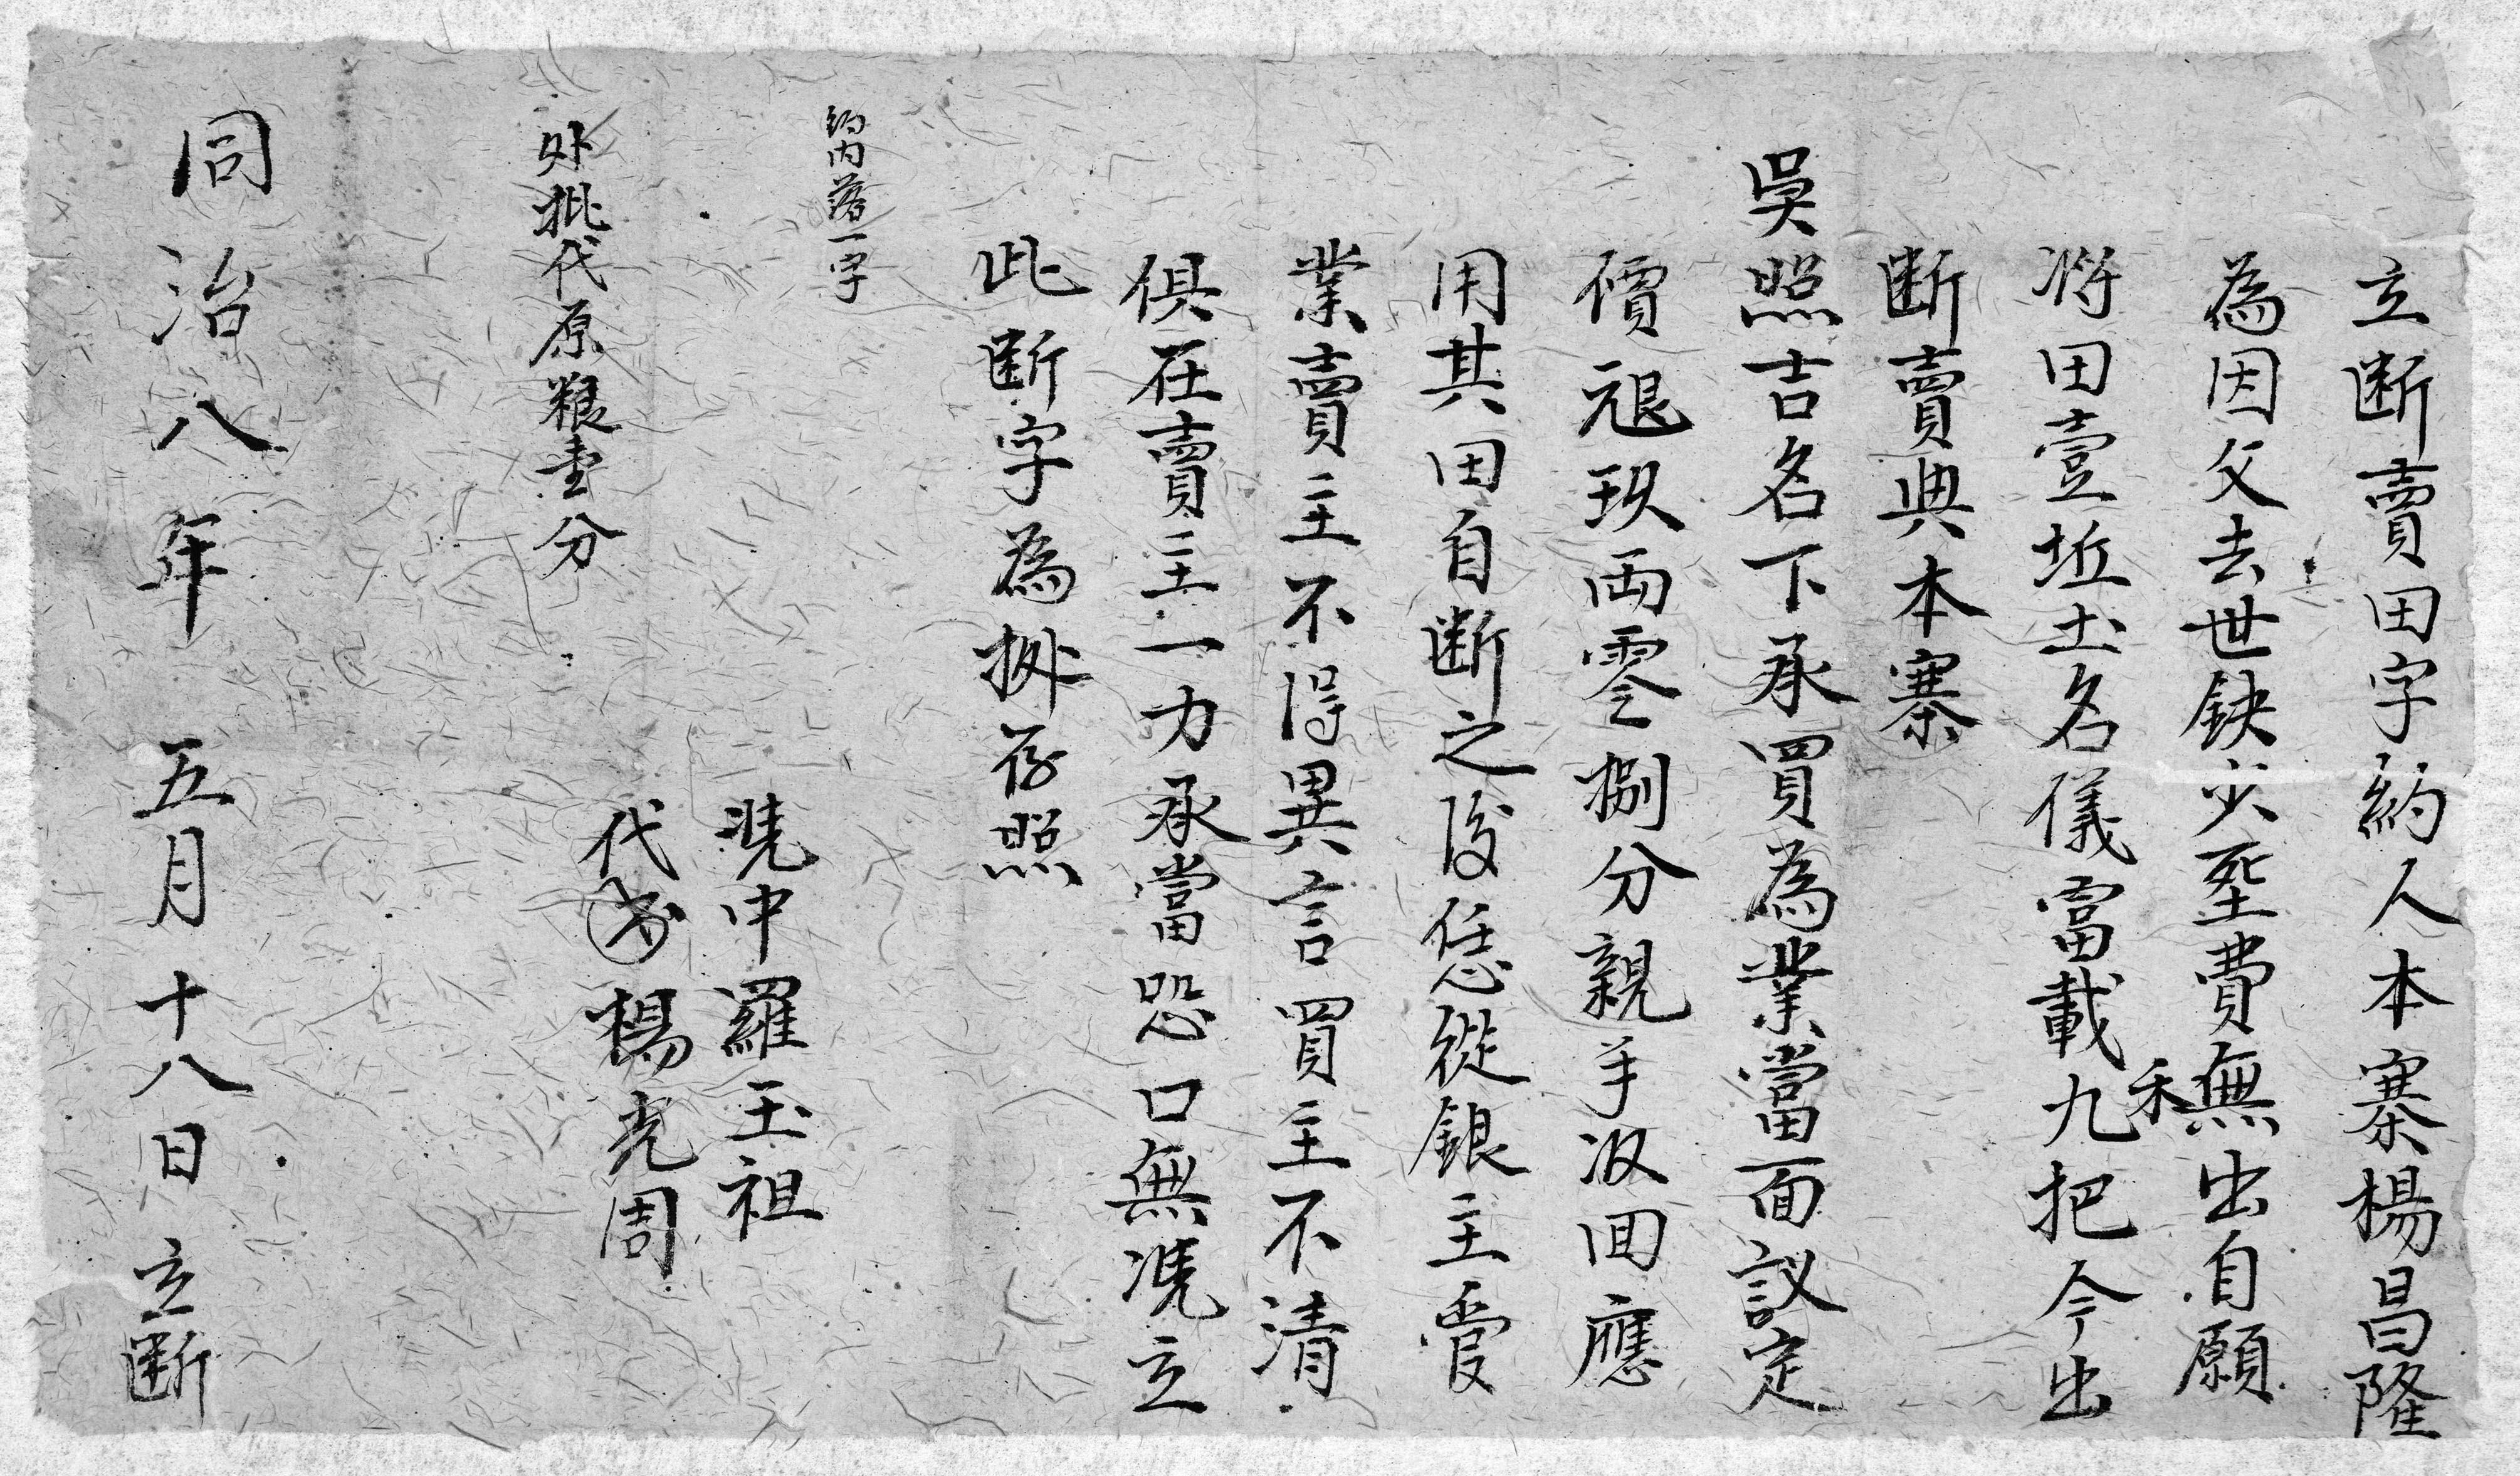 立断賣田字約人本寨楊昌隆
為因父去世缺少塟費無出自願
将田壹坵土名儀富載禾九把今出
断賣與本寨
吳照吉名下承買為業當面議定
價艮玖両零捌分親手收回應
用其田自断之後恁從銀主管
業賣主不得異言買主不清
俱在賣主一力承當恐口無憑立
此断字為據存照
約内落一字
憑中羅玉祖
代書楊光周
外批代原粮壹分
同治八年五月十八日立断